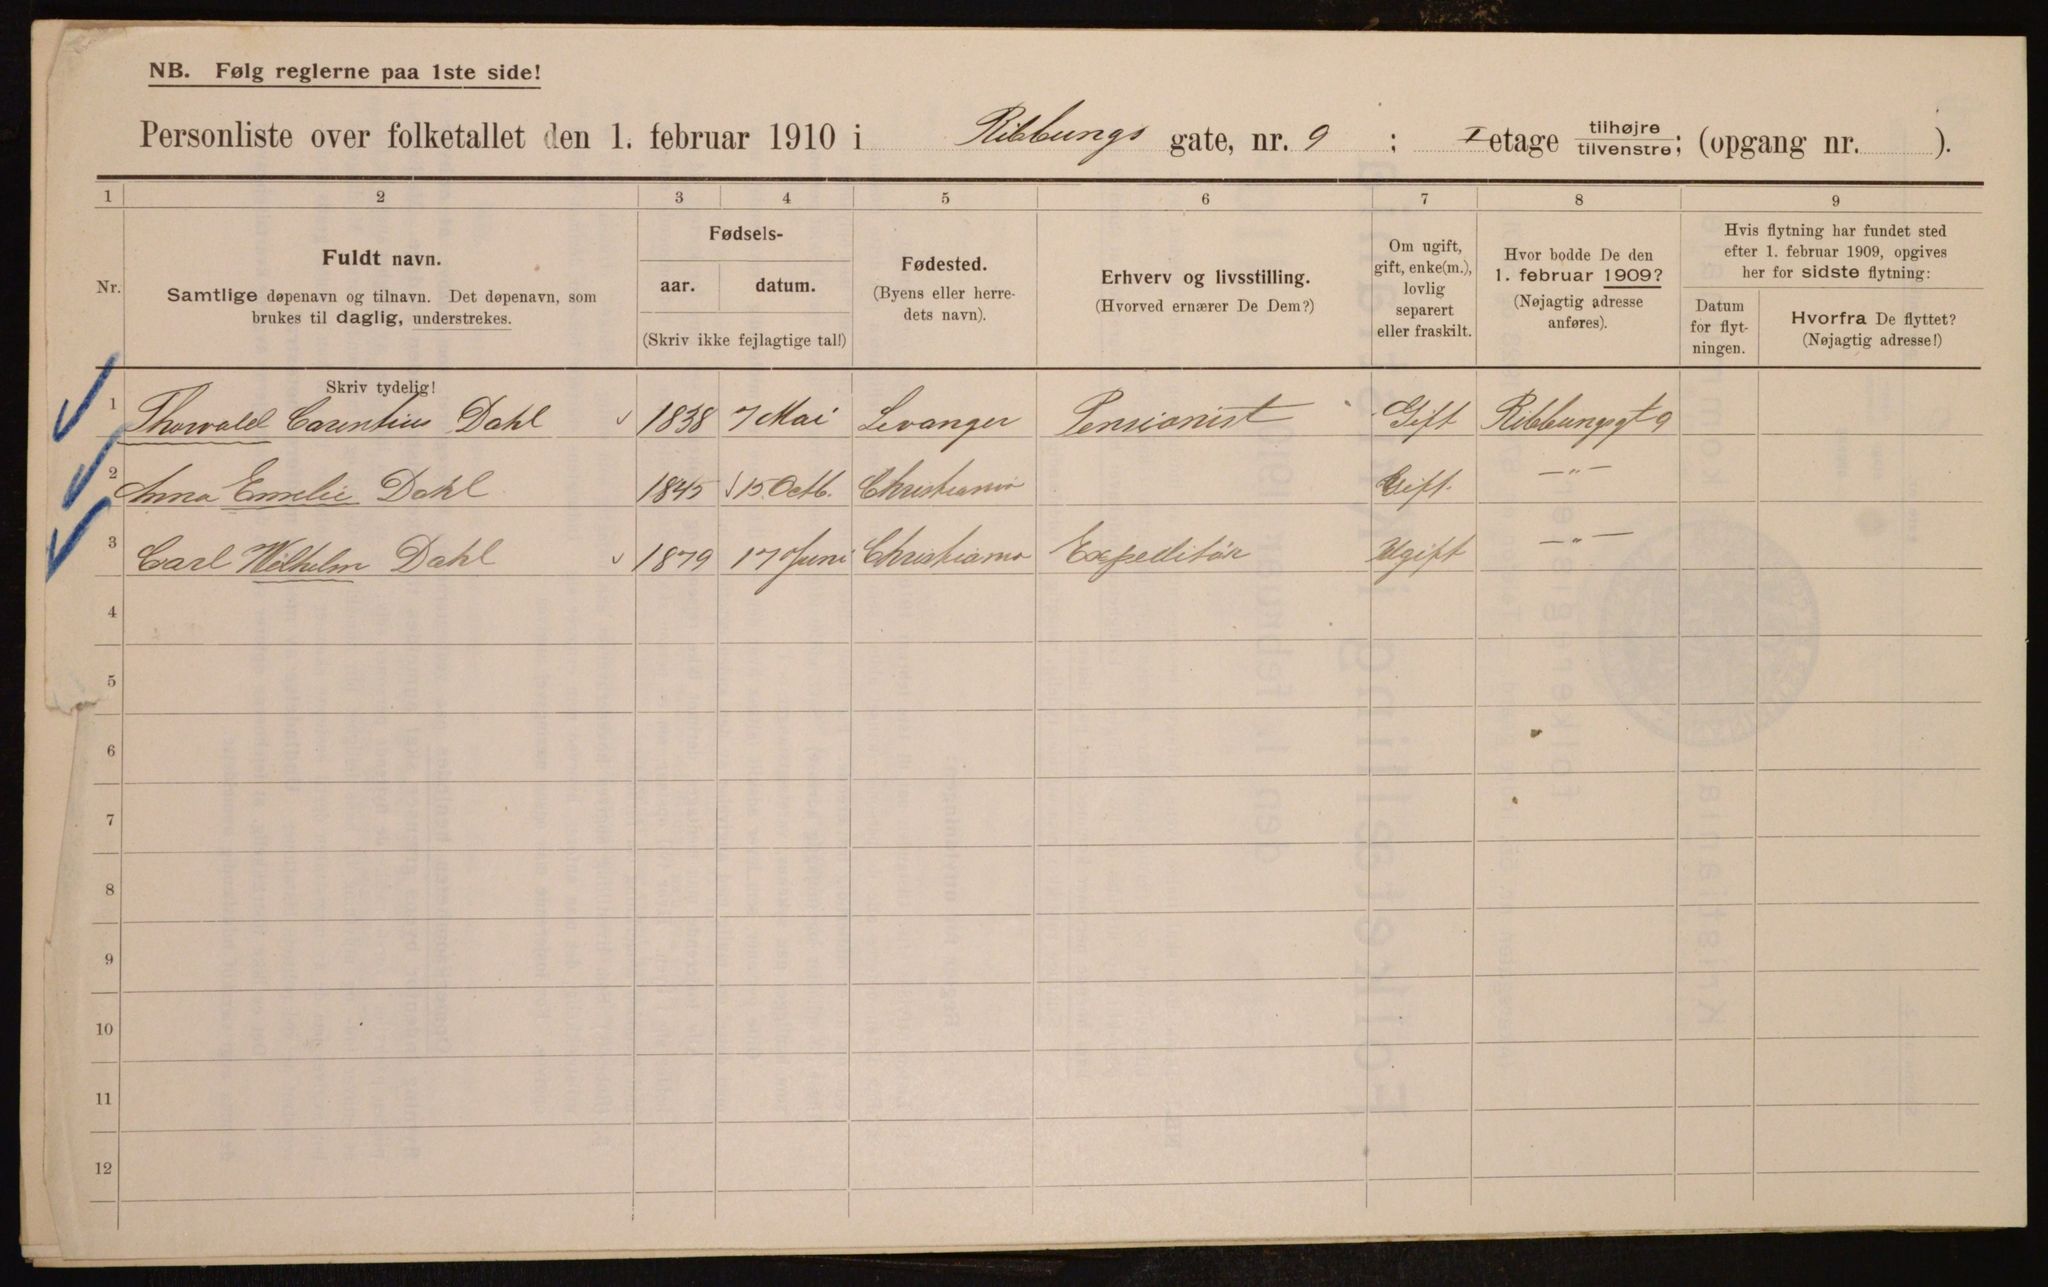 NB. Følg reglerne paa 1ste side!
Personliste over folketallet den 1. februar 1910 i Ribbungs gate, nr. 9 ; I etage tilhøjre tilvenstre; (opgang nr. ).
1 2 3 4 5 6 7 8 9
Nr.
Fuldt navn.
Samtlige døpenavn og tilnavn. Det døpenavn, som
brukes til daglig, understrekes.
Skriv tydelig!
Fødsels-
aar. datum.
(Skriv ikke fejlagtige tal!)
Fødested.
(Byens eller herre-
dets navn).
Erhverv og livsstilling.
(Hvorved ernærer De Dem?)
Om ugift,
gift, enke(m.),
lovlig
separert
eller fraskilt.
Hvor bodde De den
1. februar 1909?
(Nøjagtig adresse
anføres).
Hvis flytning har fundet sted
efter 1. februar 1909, opgives
her for sidste flytning:
Datum
for flyt-
ningen.
Hvorfra De flyttet?
(Nøjagtig adresse!)
1 Thorvald Corentius Dahl 1838 7 Mai Levanger Pensionist Gift Ribbungsgt 9
2 Anna Emelie Dahl 1845 15 Octb. Christiania Gift. —"—
3 Carl Wilhelm Dahl 1879 17 Juni Christiania Expeditør Ugift —"—
4
5
6
7
8
9
10
11
12